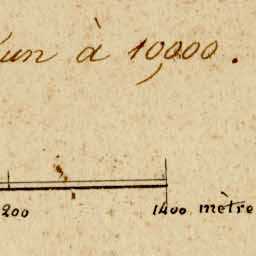 un à 10,000.
200 1400 mètre